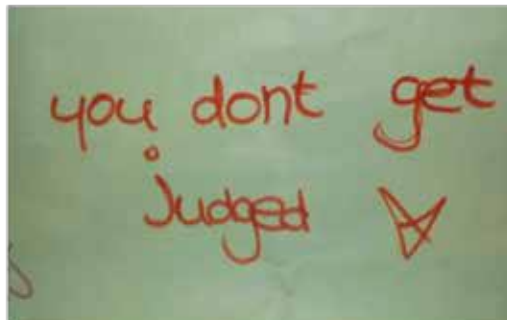 you dont get
judged